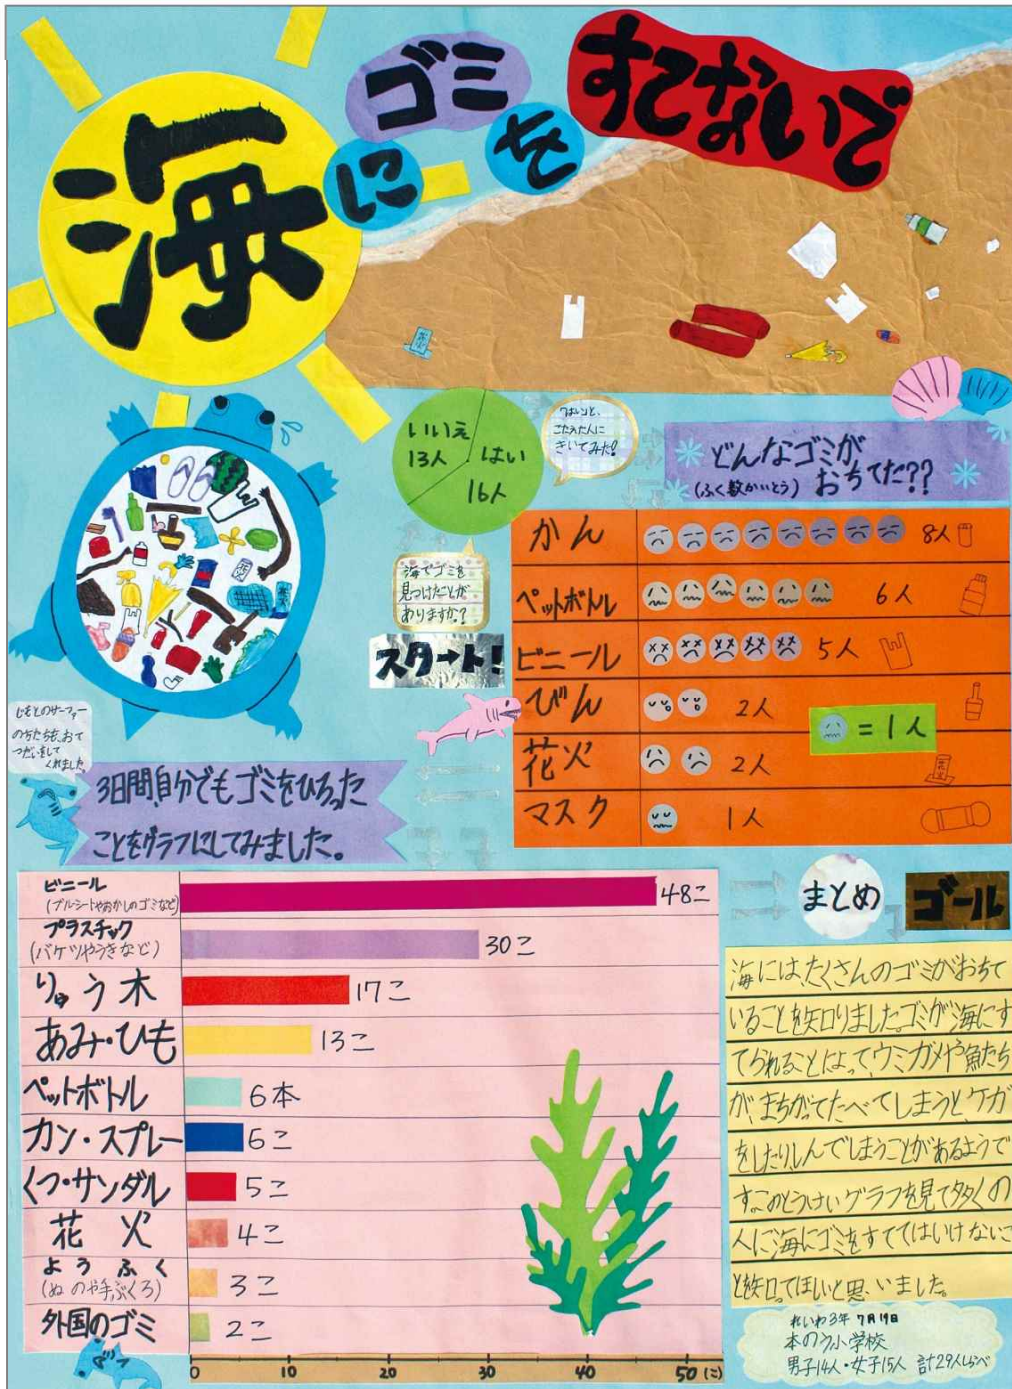 海にゴミをすてないで
いいえ
13人
はい
16人
はいと、
こたえた人に
きいてみた!
海でゴミを
見つけたことが
ありますか?
スタート!
どんなゴミが
(ふく数かいとう) おちてた??
かん 8人
ペットボトル 6人
ビニール 5人
びん 2人
花火 2人
マスク 1人
=1人
花火
じもとのサーファー
の方たちも、おて
つだいをして
くれました
3日間自分でもゴミをひろった
ことをグラフにしてみました。
ビニール 48こ
(ブルーシートやおかしのゴミなど)
プラスチック 30こ
(バケツやうきなど)
りゅう木 17こ
あみ・ひも 13こ
ペットボトル 6本
カン・スプレー 6こ
くつ・サンダル 5こ
花火 4こ
ようふく 3こ
(ぬのや手ぶくろ)
外国のゴミ 2こ
0 10 20 30 40 50 (こ)
まとめ ゴール
海には、たくさんのゴミがおちて
いることを知りました。ゴミが海にす
てられることによって、ウミガメや魚たち
が、まちがってたべてしまうと、ケガ
をしたりしんでしまうことがあるようで
す。このとうけいグラフを見て多くの
人に海にゴミをすててはいけないこ
とを知ってほしいと思いました。
れいわ3年 7月19日
本のう小学校
男子14人・女子15人 計29人しらべ